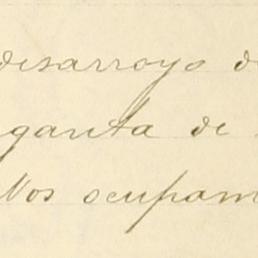 desarroyo de
ganta de
Nos ocupam